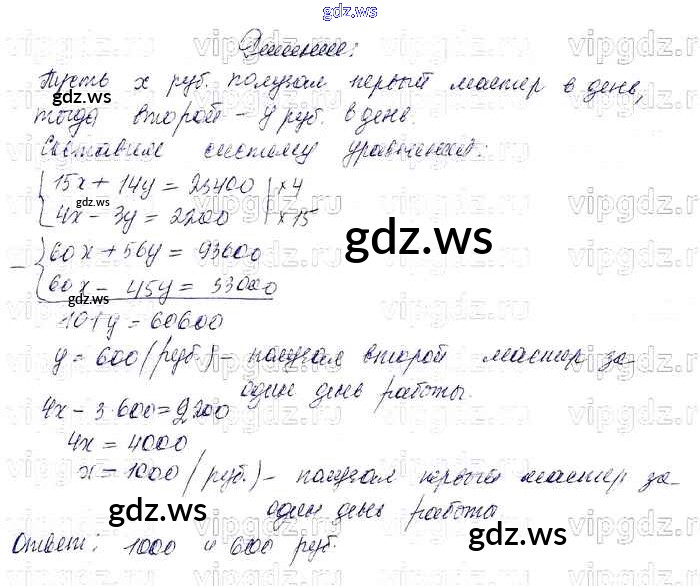 gdz.ws
Решение:
Пусть x руб. получал первый мастер в день,
тогда второй – y руб. в день.
Составим систему уравнений:
15x + 14y = 23400 | ×4
4x – 3y = 2200 | ×15
– 60x + 56y = 93600
60x – 45y = 33000
101y = 60600
y = 600 (руб.) – получал второй мастер за
один день работы.
4x – 3·600 = 2200
4x = 4000
x = 1000 (руб.) – получал первый мастер за
один день работы
Ответ: 1000 и 600 руб.
gdz.ws
gdz.ws
gdz.ws
gdz.ws
gdz.ws